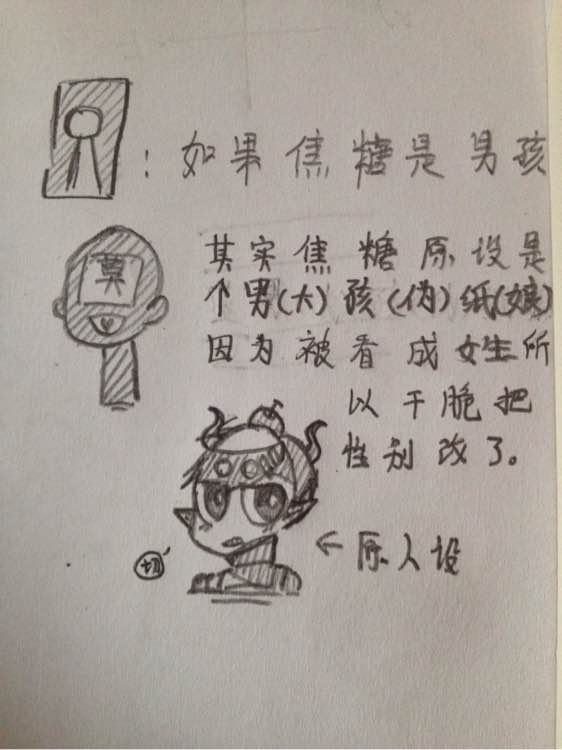 ：如果焦糖是男孩
莫
其实焦糖原设是
个男(大)孩(伪)纸(娘)
因为被看成女生所
以干脆把
性别改了。
切
←原人设